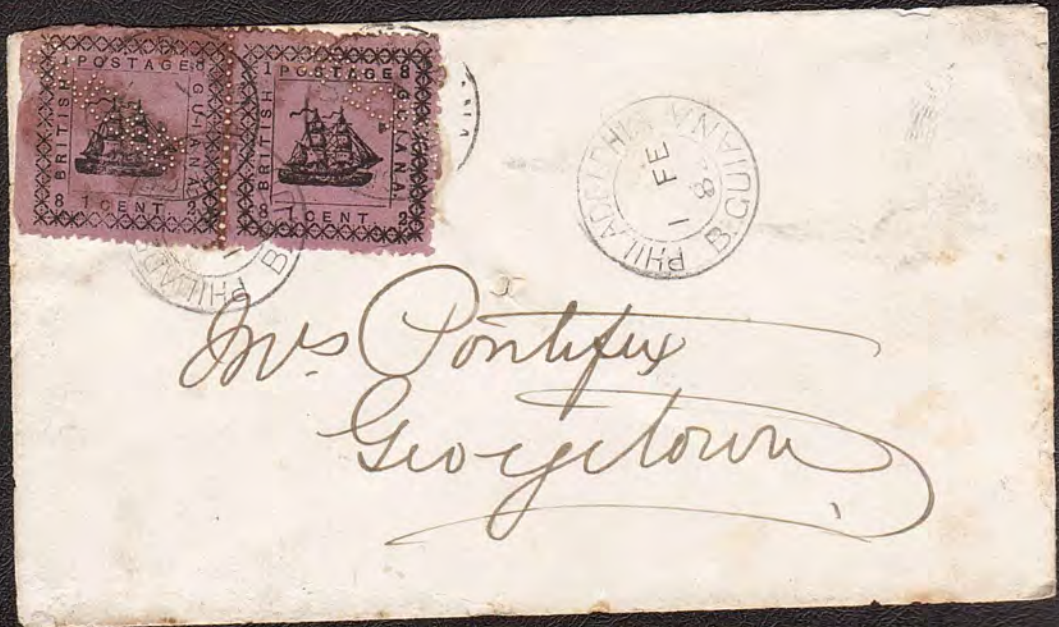 1 POSTAGE 8
BRITISH
GUIANA.
8 1 CENT. 2
1 POSTAGE 8
BRITISH
GUIANA.
8 1 CENT. 2
PHILADELPHIA
1
FE
B. GUIANA
Mrs. Pontifex
Georgetown